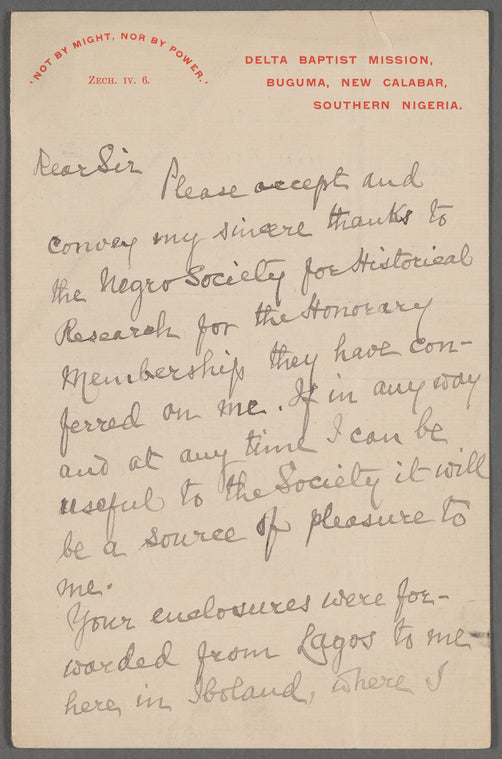 'NOT BY MIGHT, NOR BY POWER.'
ZECH. IV. 6.
DELTA BAPTIST MISSION,
BUGUMA, NEW CALABAR,
SOUTHERN NIGERIA.
Dear Sir
Please accept and
convey my sincere thanks to
the Negro Society for Historical
Research for the Honorary
Membership they have con-
ferred on me. If in any way
and at any time I can be
useful to the Society it will
be a source of pleasure to
me.
Your enclosures were for-
warded from Lagos to me
here, in Iboland, where I